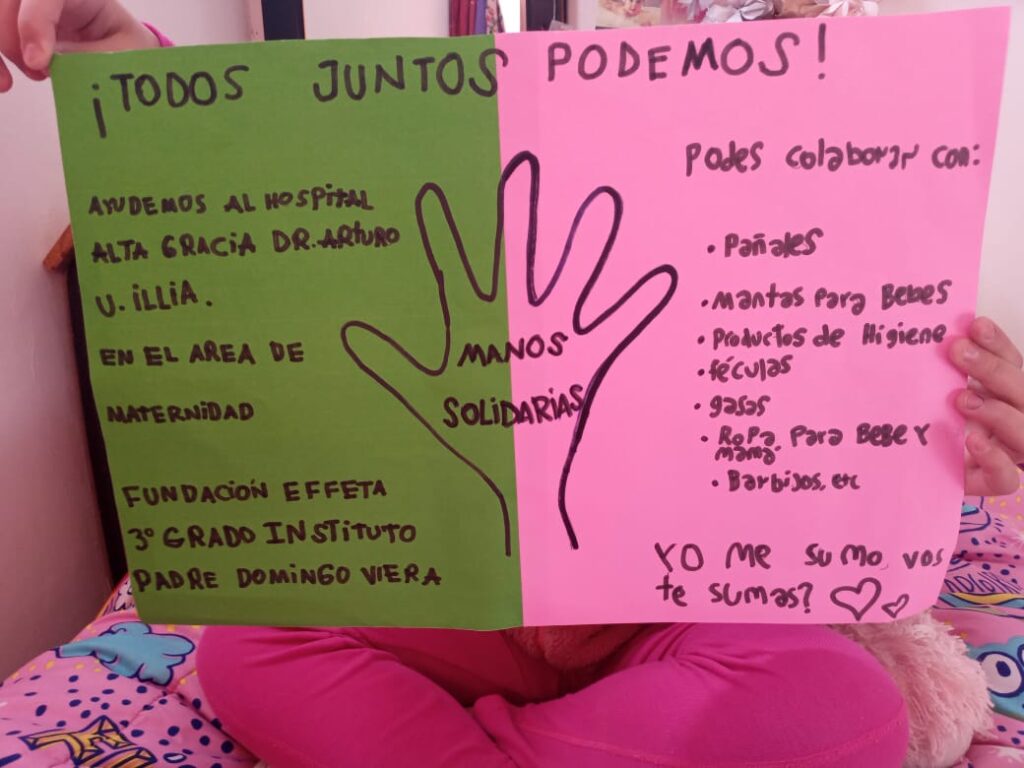 ¡TODOS JUNTOS PODEMOS!
AYUDEMOS AL HOSPITAL
ALTA GRACIA DR. ARTURO
U. ILLIA.
EN EL AREA DE
MATERNIDAD
FUNDACIÓN EFFETA
3° GRADO INSTITUTO
PADRE DOMINGO VIERA
MANOS
SOLIDARIAS
Podes colaborar con:
• Pañales
• mantas Para Bebes
• Productos de Higiene
• féculas
• gasas
• Ropa Para BeBe Y
mamá.
• Barbijos, etc
YO Me sumo, vos
te sumas?